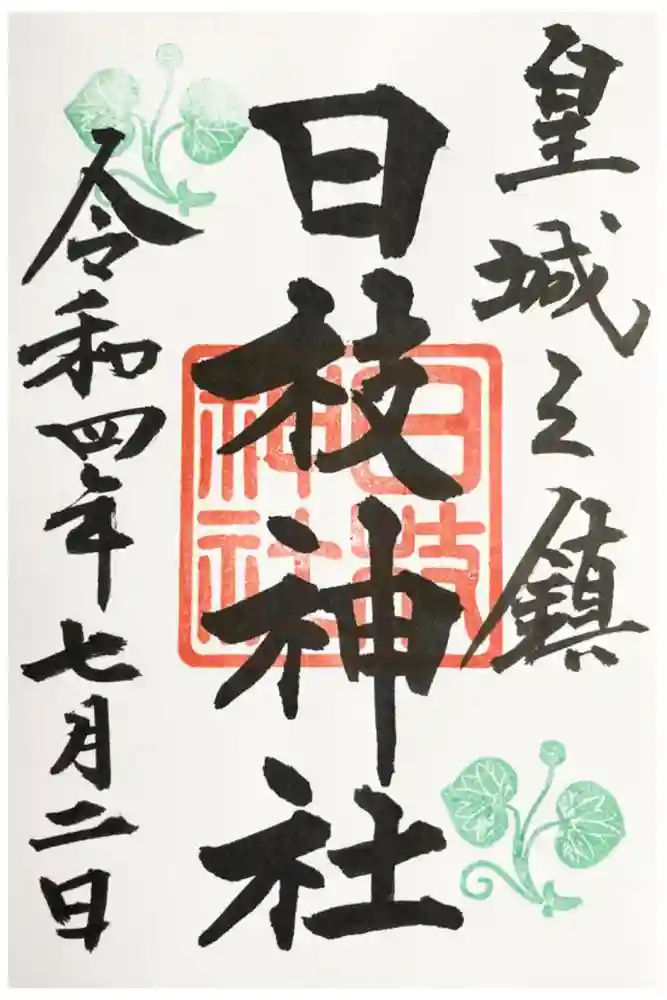 皇城之鎮
日枝神社
日枝神社
令和四年七月二日